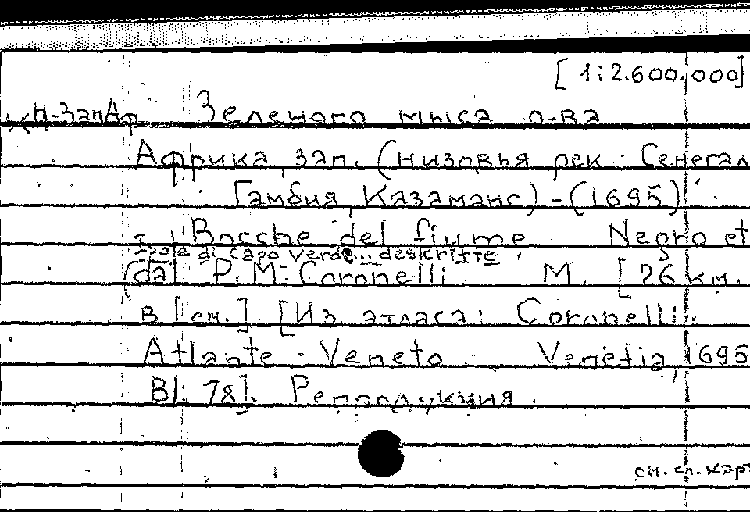 [1:2.600.000]
н-ЗапАф Зеленого мыса о-ва
Африка, зап. (низовья рек: Сенегал
Гамбия, Казаманс) - (1695)
Bocche del fiume Negro et
Isole di Capo Verde... descritte
dal P. M. Coronelli. М. [26 км.
в 1 см.] [Из атласа: Coronelli.
Atlante Veneto Venetia, 1695
Bl. 78]. Репродукция
см. сл. карт